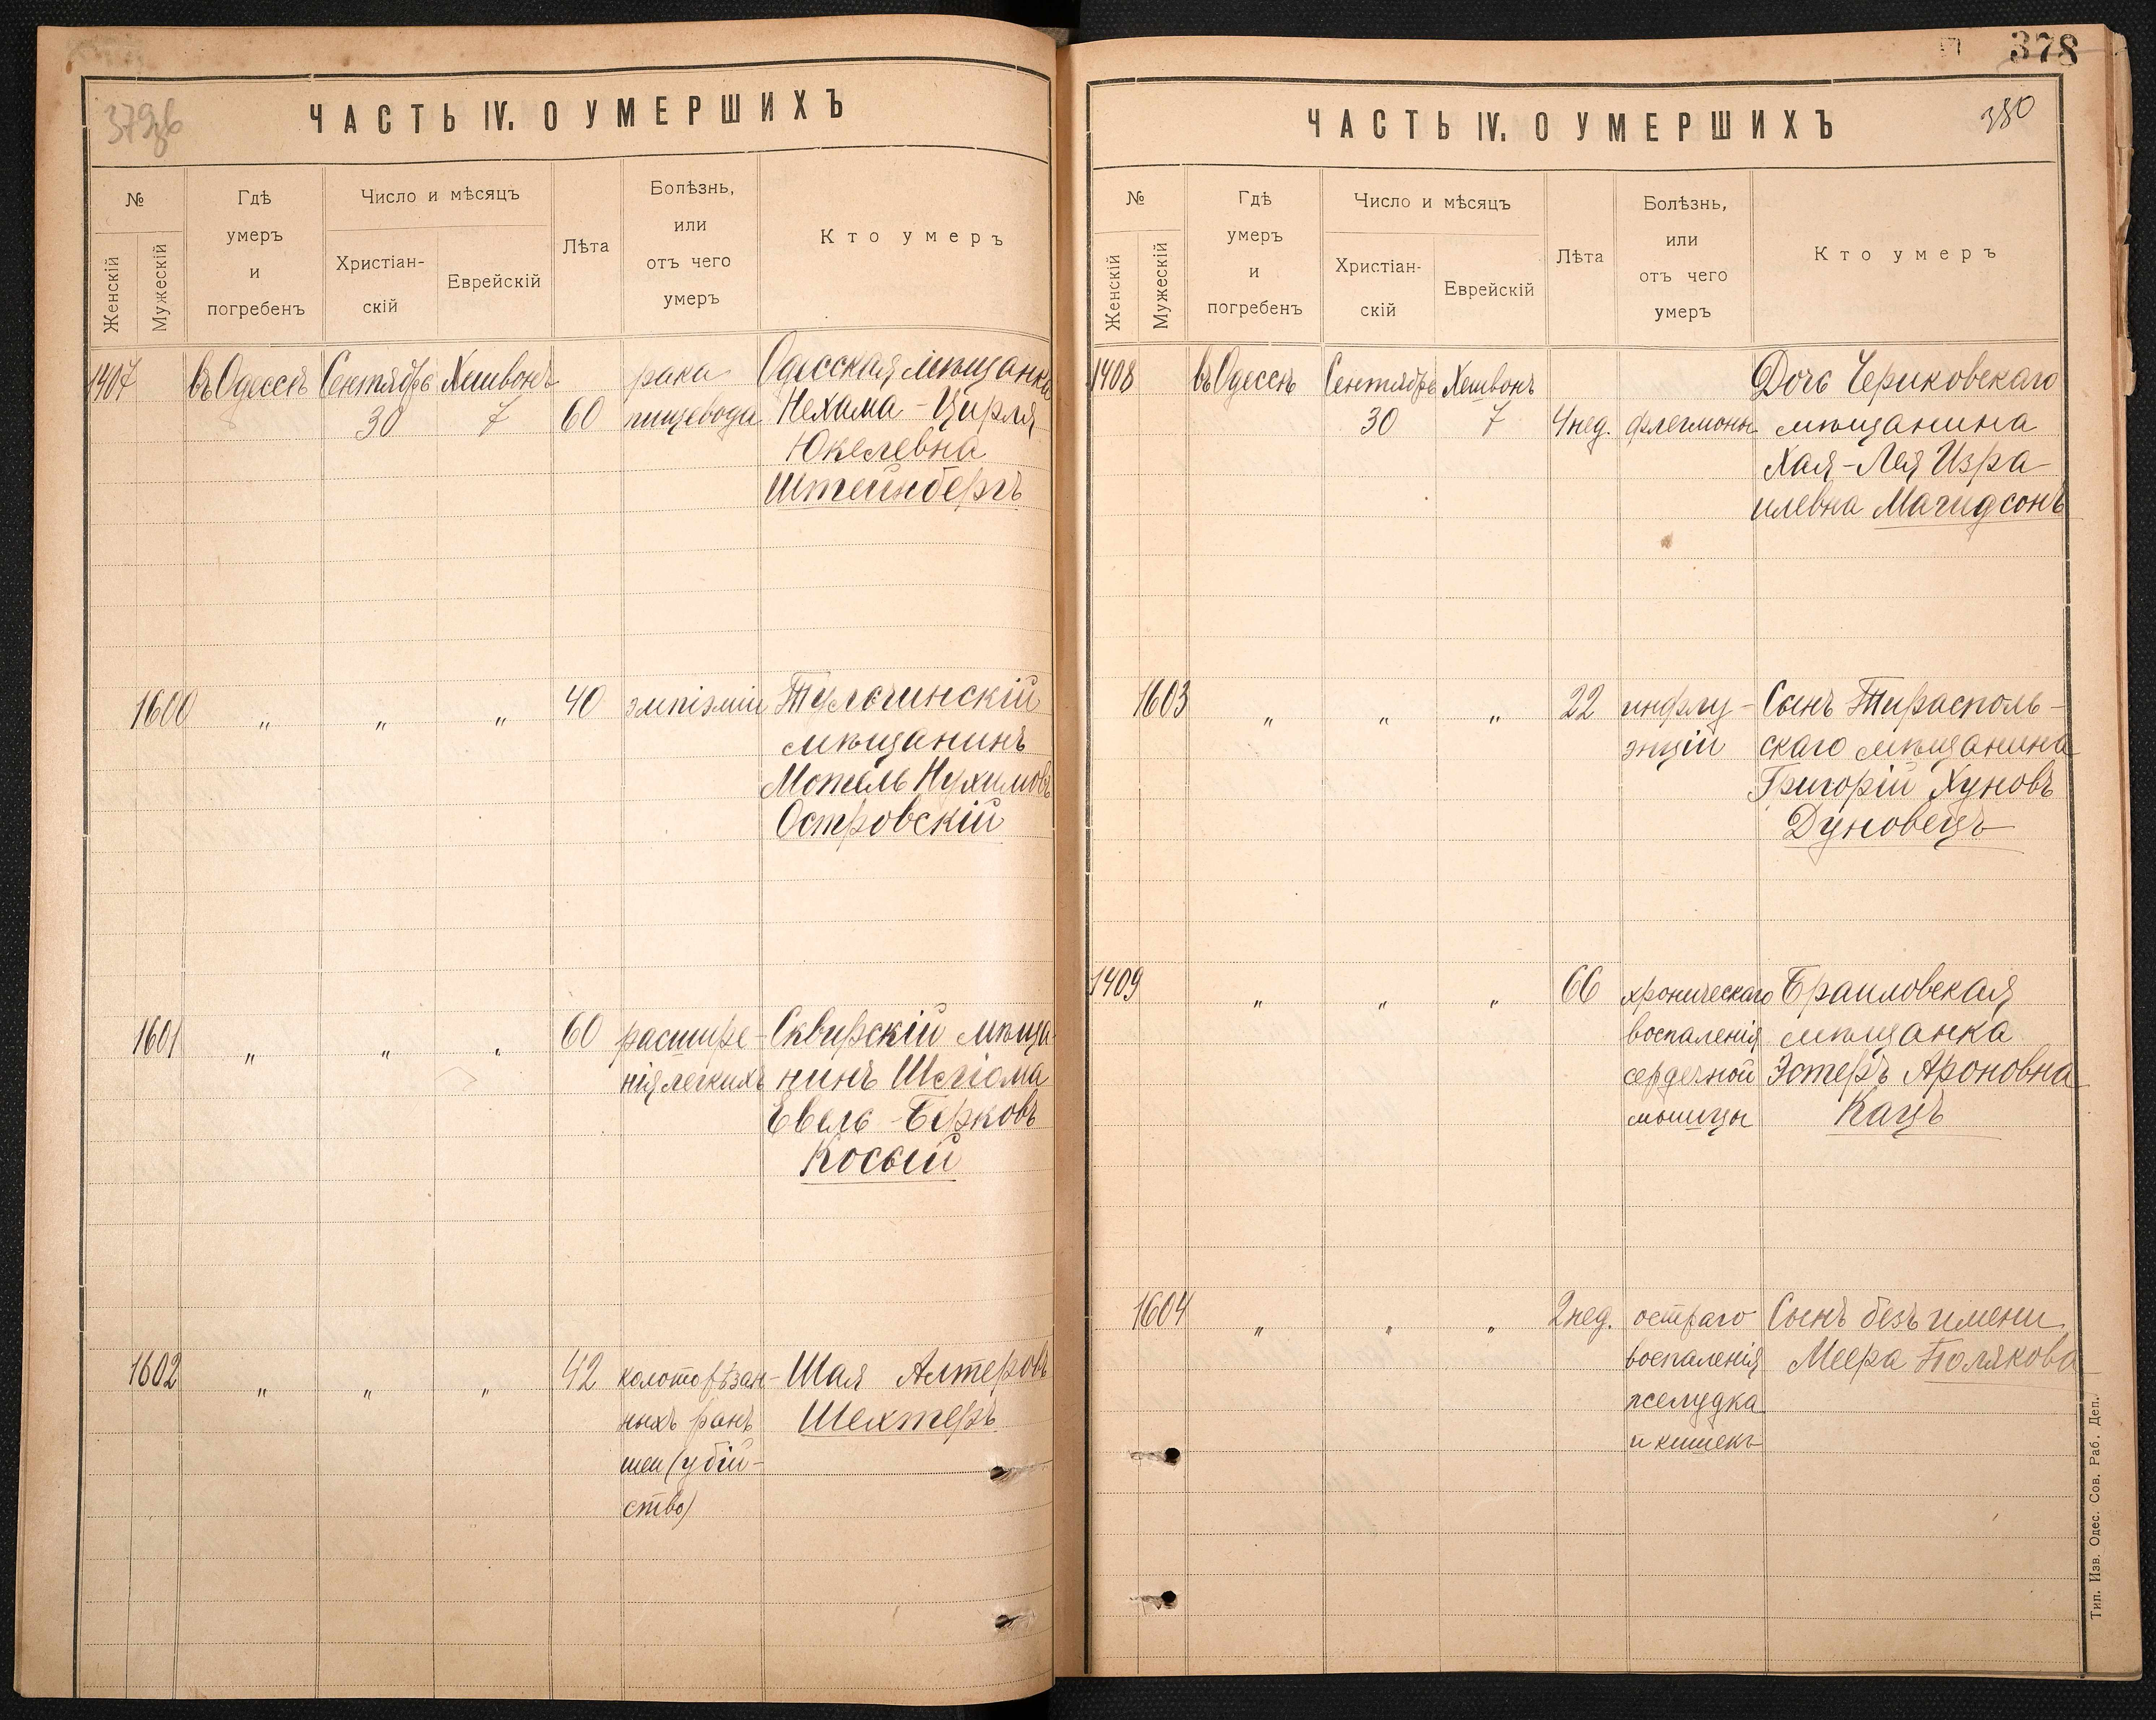 379об
ЧАСТЬ IV. О УМЕРШИХЪ
№
Женскій
Мужескій
Гдѣ
умеръ
и
погребенъ
Число и мѣсяцъ
Христіан-
скій
Еврейскій
Лѣта
Болѣзнь,
или
отъ чего
умеръ
Кто умеръ
1407 въ Одессѣ Сентябрь Хешвонъ рака Одесская мѣщанка
30 7 60 пищевода Нехама-Цирля
Юкелевна
Штейнбергъ
1600 „ „ „ 40 эмпіэміи Тульчинскій
мѣщанинъ
Мотель Нухимовъ
Островскій
1601 „ „ „ 60 расшире- Сквирскій мѣща-
нія легкихъ нинъ Шлiома
Евель-Берковъ
Косый
1602 „ „ „ 42 колоторѣзан- Шая Алтеровъ
ныхъ ранъ Шехтеръ
шеи (убій-
ство)
378
380
ЧАСТЬ IV. О УМЕРШИХЪ
№
Женскій
Мужескій
Гдѣ
умеръ
и
погребенъ
Число и мѣсяцъ
Христіан-
скій
Еврейскій
Лѣта
Болѣзнь,
или
отъ чего
умеръ
Кто умеръ
1408 въ Одессѣ Сентябрь Хешвонъ Дочь Чериковскаго
30 7 4 нед. флегмоны мѣщанина
Хая-Лея Изра-
илевна Магидсонъ
1603 „ „ „ 22 инфлу- Сынъ Тирасполь-
энціи скаго мѣщанина
Григорій Хуновъ
Дуновецъ
1409 „ „ „ 66 хроническаго Браиловская
воспаленія мѣщанка
сердечной Эстеръ Ароновна
мышцы Кацъ
1604 „ „ „ 2 нед. остраго Сынъ безъ имени
воспаленія Меера Полякова
желудка
и кишекъ
Тип. Изв. Одес. Сов. Раб. Деп.